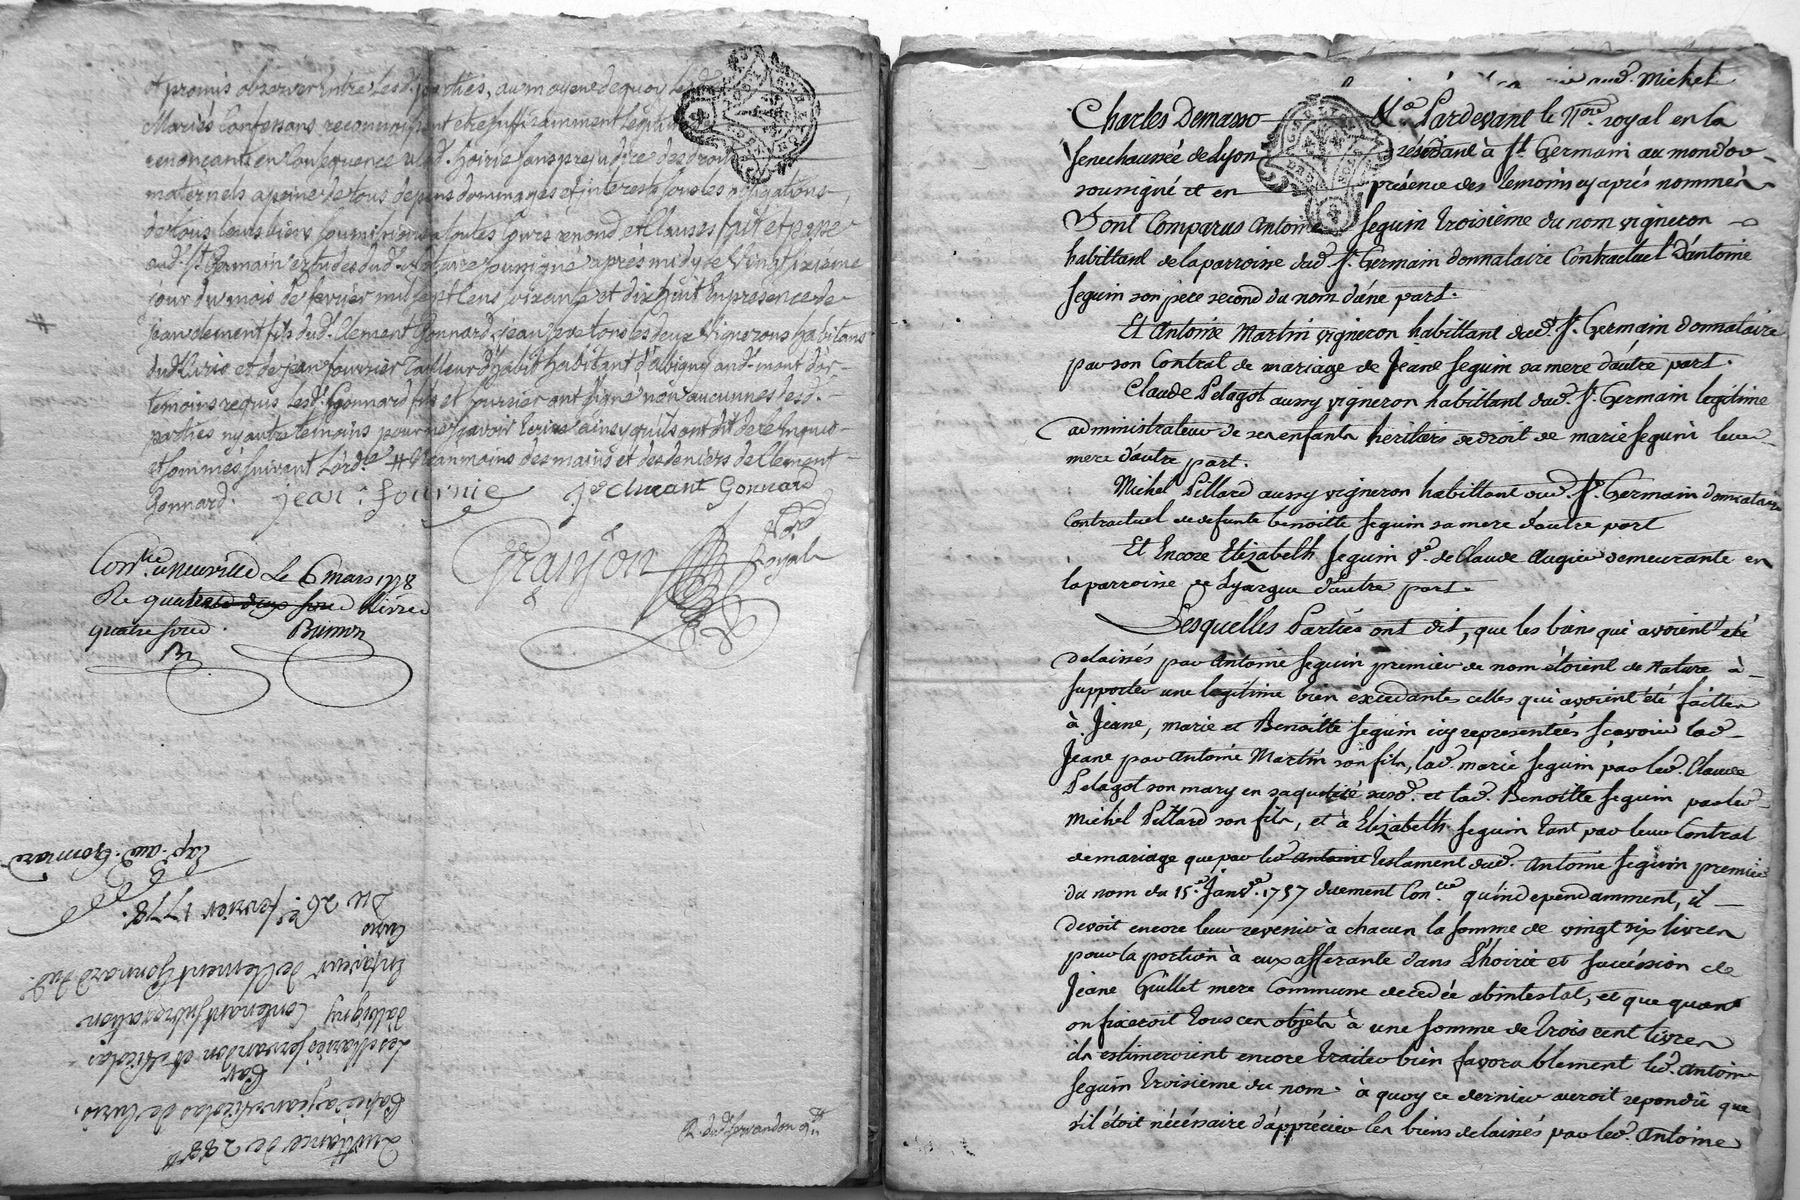 et promis observer entre lesd. parties, au moyen de quoy lesd.
Mariés Confessans reconnoissent etre suffisamment légitimés
renonçant en Consequence à lad. hoirie sans prejudice des droits
maternels a peine de tous depens dommages et interests sous les obligations
de tous leurs biens soumissions a toutes Cours renond. et Clauses fait et passé
aud. St. Germain etudes dud. notaire soussigné après midy le Vingt sixieme
jour du mois de fevrier mil sept Cens soixante et dix huit En presence de
jean Clement fils dud. Clement Gonnard, jean tous les deux Vignerons habitans
dud. Curis et de jean fournier Tailleur d'habit habitant d'albigny aud. mont d'or
temoins requis lesd. Gonnard fils et fournier ont signé non aucunnes desd.
parties ny autre temoins pour ne sçavoir Ecrire ainsy qu'ils ont dit de ce Enquis
et sommés suivant L'ordce # Neanmoins des mains et des deniers de Clement
Gonnard. jean fournie Jn clement Gonnard
Granjon Nore
Royal
Conlle. a neuville Le 6 mars 1778
Re quatre livres
quatre sous. Brunon
Bn
R. dud. fervandon 2tt
Quittance de 288tt
Passée a jean Nicolas de Curis,
Par
Les Mariés fervandon et Nicolas
d'albigny Contenant subrogation
En faveur de Clement Gonnard dud.
Curis
Du 26e fevrier 1778.
Exp. aud. Gonnard
aud. Michel
Charles Demasso Pardevant le Nore royal en la
senechaussée de Lyon résidant à St. Germain au mondor
soussigné et en présence des temoins cy après nommés
Sont Comparus Antoine Seguin troisième du nom vigneron
habittant de la parroisse dud. St. Germain donnataire Contractuel d'antoine
Seguin son père second du nom d'une part.
Et Antoine Martin vigneron habittant dud. St. Germain donnataire
par son Contrat de mariage de Jeane Seguin sa mere d'autre part.
Claude Pelagot aussy vigneron habittant dud. St. Germain legitime
administrateur de ses enfants heritiers de droit de marie Seguin leur
mere d'autre part.
Michel Pillard aussy vigneron habittant aud. St. Germain donnataire
Contractuel de defunte benoitte Seguin sa mere d'autre part
Et Encore Elizabeth Seguin Ve. de Claude Augier demeurante en
la parroisse de d'autre part.
Lesquelles Parties ont dit, que les biens qui avoient été
delaissés par Antoine Seguin premier de nom étoient de Nature à
supporter une légitime bien excedantes celles qui avoient été faittes
à Jeane, marie et Benoitte Seguin icy representées sçavoir lad.
Jeane par Antoine Martin son fils, lad. marie Seguin par led. Claude
Pelagot son mary en sa qualité susd. et lad. Benoitte Seguin par led.
Michel Pillard son fils, et à Elizabeth Seguin tant par leur Contrat
de mariage que par led. antoine testament dud. Antoine Seguin premier
du nom du 15e. Janvr. 1757 duement Conllé. qu'independamment, il
devoit encore leur revenir à chacun la somme de vingt six livres
pour la portion à eux afferante dans L'hoirie et succession de
Jeane Guillet mere Commune decedée abintestat, et que quand
on fixeroit tous ces objets à une somme de trois cent livres
ils estimeroient encore traiter bien favorablement led. Antoine
Seguin troisieme du nom. à quoy ce dernier auroit repondû que
s'il étoit nécéssaire d'apprécier les biens delaissés par led. Antoine